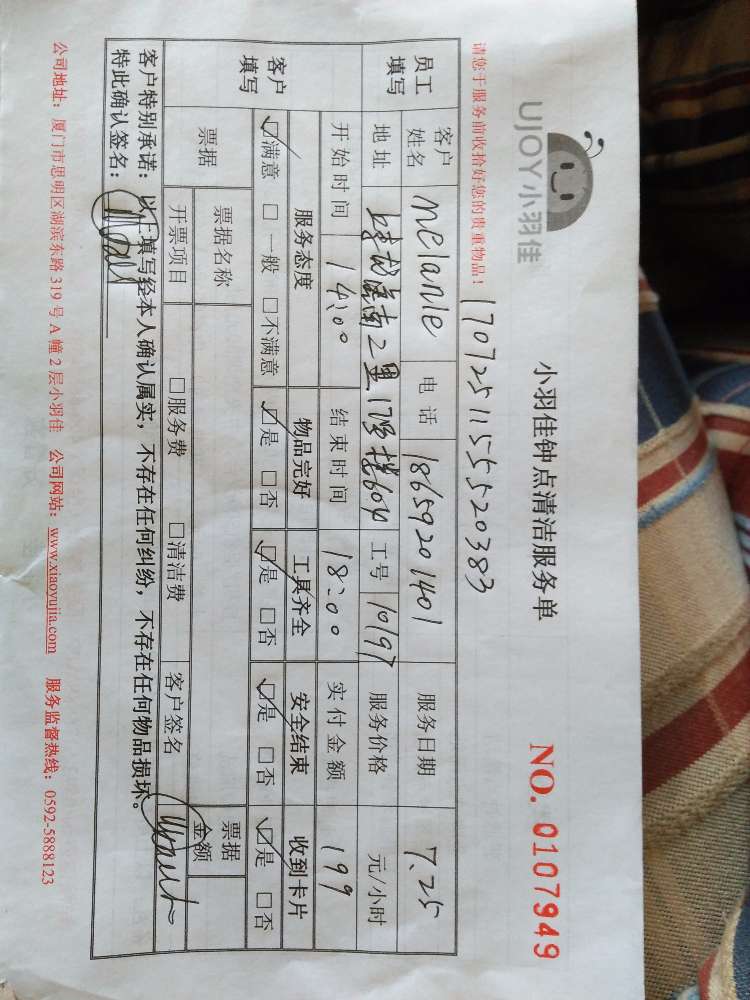 UJOY小羽佳
小羽佳钟点清洁服务单
NO. 0107949
请您于服务前收拾好您的贵重物品！
1707251155520383
员工填写 客户姓名 melanie 电话 18659201401 服务日期 7.25
地址 南2里17号楼604 工号 10197 服务价格 元/小时
开始时间 14:00 结束时间 18:00 实付金额 199
客户填写 服务态度 物品完好 工具齐全 安全结束 收到卡片
☑满意 □一般 □不满意 ☑是 □否 ☑是 □否 ☑是 □否 ☑是 □否
票据 票据名称 票据金额
开票项目 □服务费 □清洁费 客户签名
客户特别承诺：以上填写经本人确认属实，不存在任何纠纷，不存在任何物品损坏。
特此确认签名：
公司地址：厦门市思明区湖滨东路 319 号 A 幢 2 层小羽佳 公司网站：www.xiaoyujia.com 服务监督热线：0592-5888123